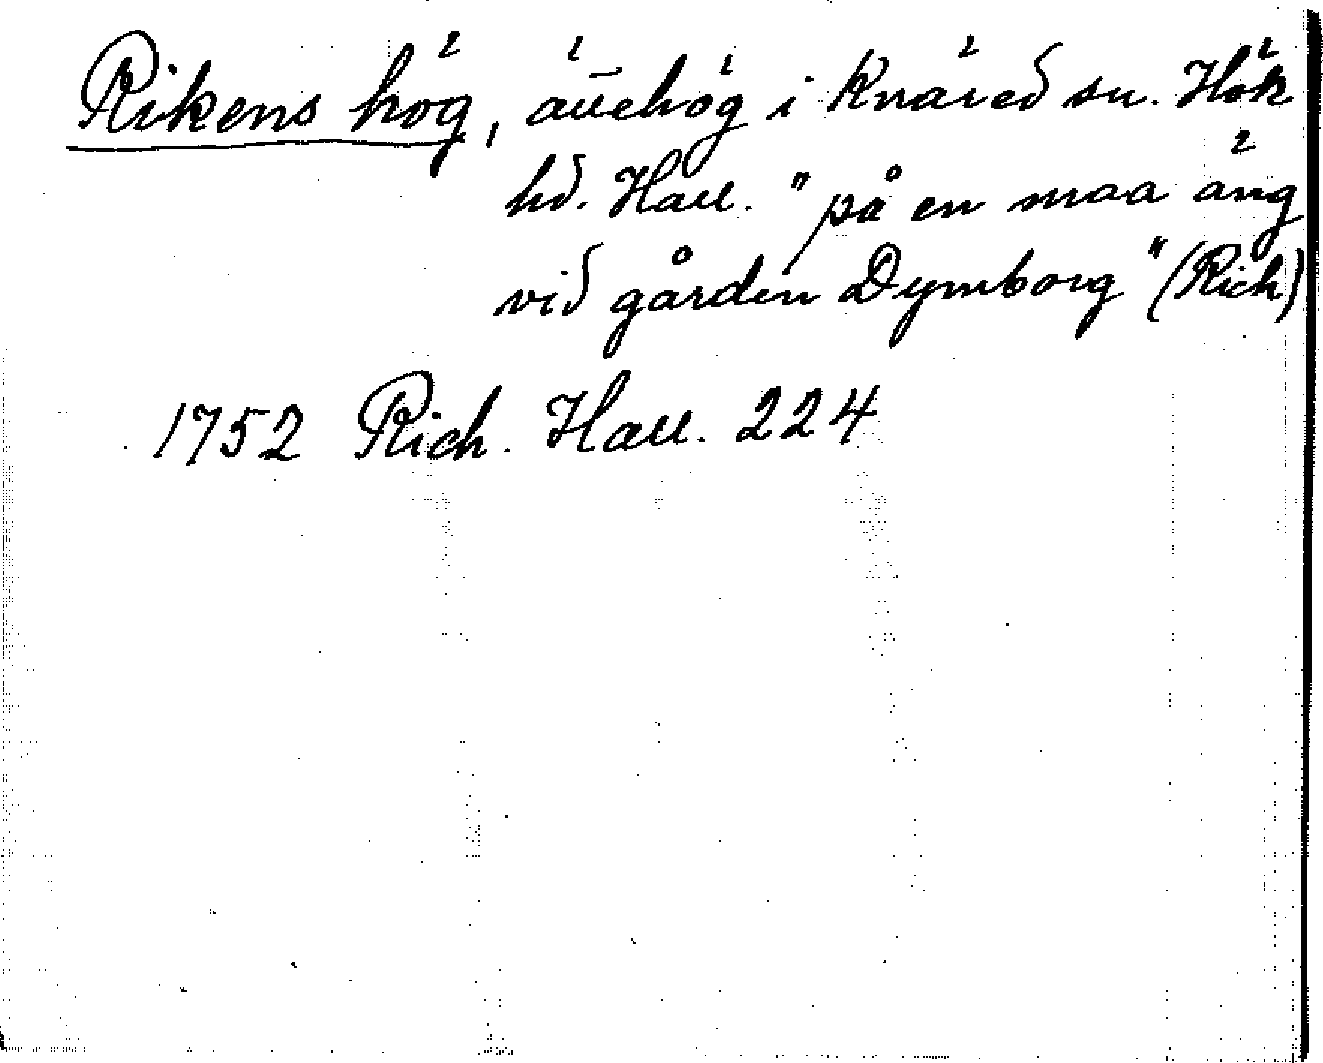 Rikens hög, ättehög i Knäred sn. Hök
hd. Hall. "på en maa äng
vid gården Dymborg" (Rich)
1752 Rich. Hall. 224